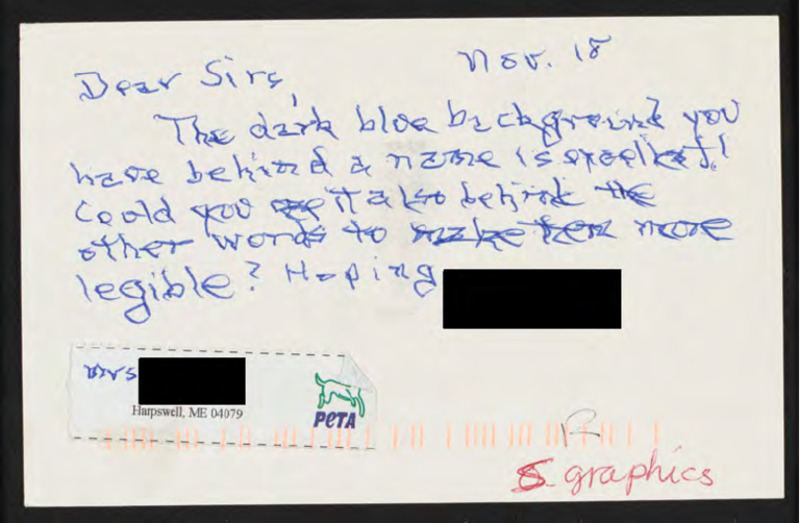 Nov. 18
Dear Sirs,
The dark blue background you
have behind a name is excellent!
Could you use it also behind the
other words to make them more
legible? Hoping
Mrs
Harpswell, ME 04079
PETA
R
5 graphics